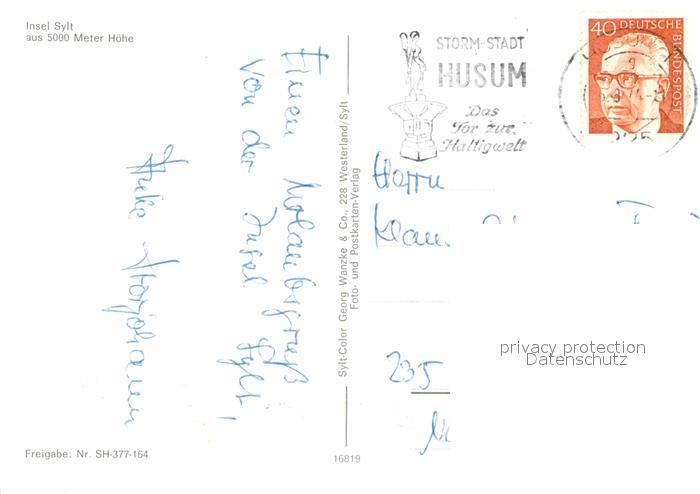 Insel Sylt
aus 5000 Meter Höhe
Einen Urlaubsgruß
von der Insel Sylt,
Freigabe: Nr. SH-377-164
Sylt-Color Georg Wanzke & Co., 228 Westerland/Sylt
Foto- und Postkarten-Verlag
16819
STORM-STADT
HUSUM
Das
Tor zur
Halligwelt
40 DEUTSCHE
BUNDESPOST
Herrn
Klaus
235
privacy protection
Datenschutz